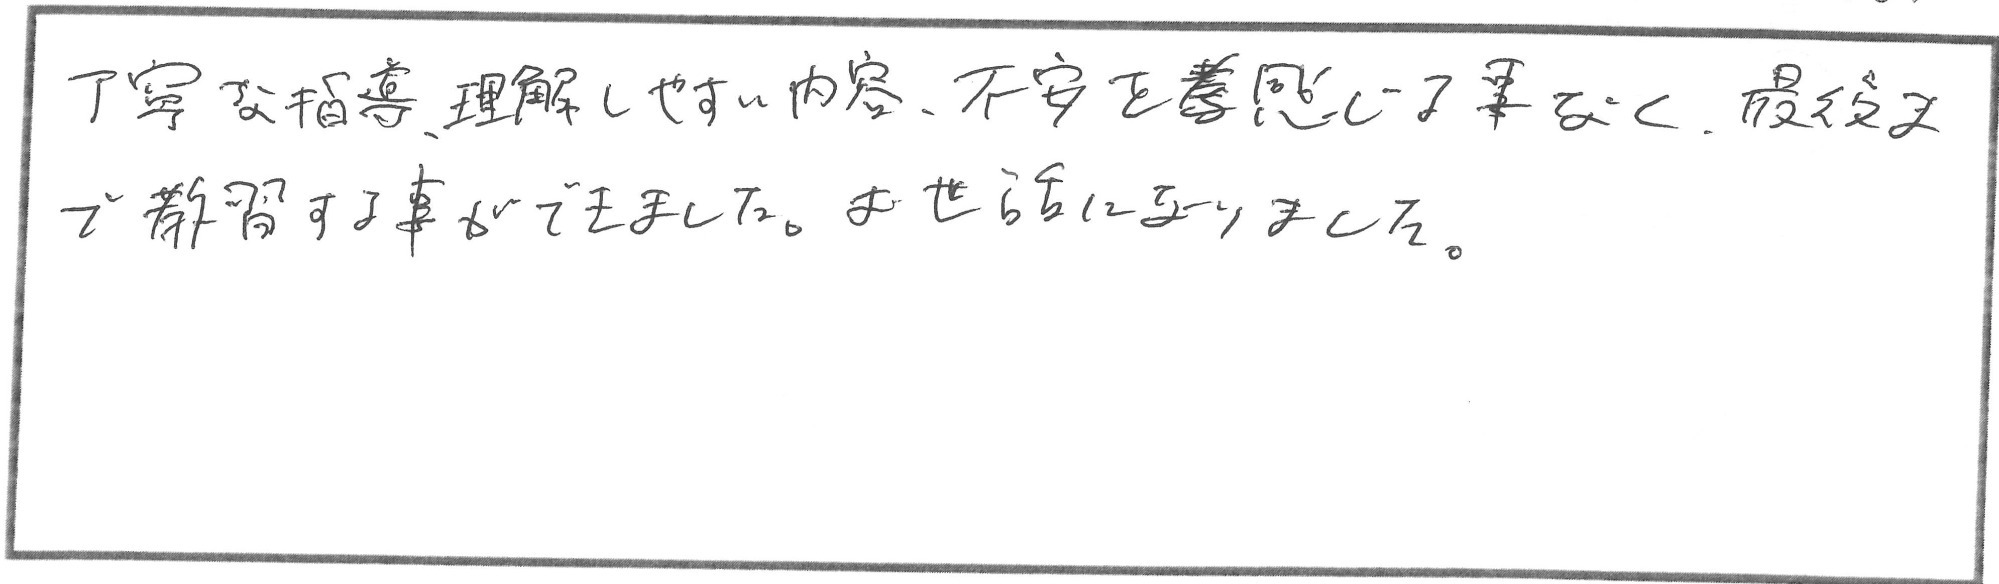 丁寧な指導、理解しやすい内容、不安を感じる事なく、最後ま
で教習する事ができました。お世話になりました。